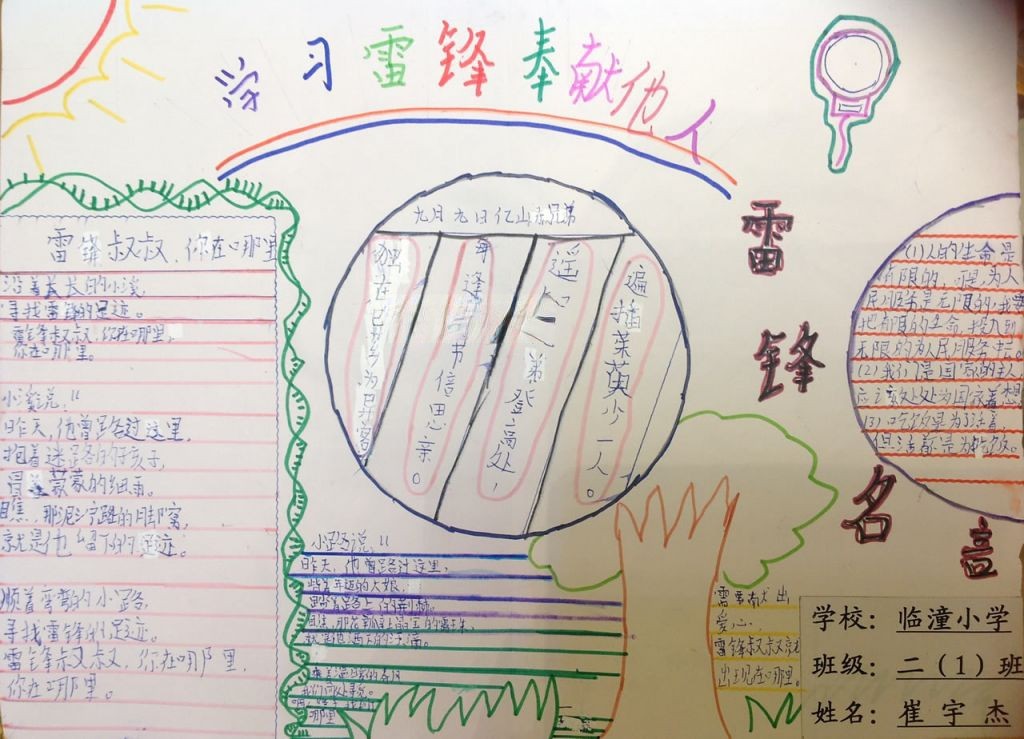 学习雷锋奉献他人
雷锋叔叔,你在哪里
沿着长长的小溪,
寻找雷锋的足迹。
雷锋叔叔,你在哪里,
你在哪里。
小溪说:"
昨天,他曾路过这里,
抱着迷路的孩子,
冒着蒙蒙的细雨。
那泥泞路的脚窝,
就是他留下的足迹。
顺着弯弯的小路,
寻找雷锋的足迹。
雷锋叔叔,你在哪里,
你在哪里。
九月九日忆山东兄弟
独在异乡为异客
每逢佳节倍思亲。
遥知兄弟登高处,
遍插茱萸少一人。
小路说:"
昨天,他曾路过这里,
背着年迈的大娘,
踏着路上的荆棘。
需要献出
爱心,
雷锋叔叔就
出现在哪里。
雷锋名言
(1)人的生命是
有限的,可是,为人
民服务是无限的,我要
把有限的生命,投入到
无限的为人民服务去。
(2)我们是国家的主人
应该处处为国家着想
(3)吃饭是为了活着,
但活都是为吃饭。
学校:临潼小学
班级:二(1)班
姓名:崔宇杰